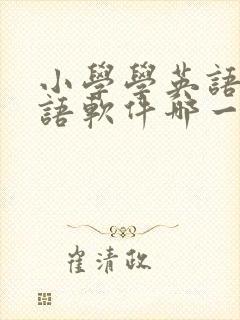 小學學英語
語軟件哪一
崔清政